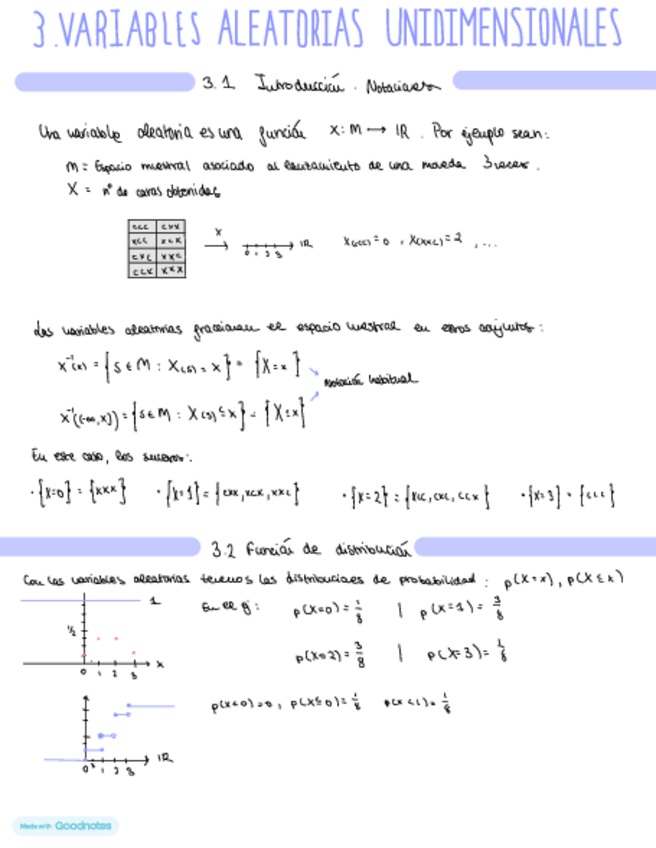 3. VARIABLES ALEATORIAS UNIDIMENSIONALES
3.1 Introducción. Notaciones
Una variable aleatoria es una función X: M → IR. Por ejemplo sean:
M = Espacio muestral asociado al lanzamiento de una moneda 3 veces.
X = nº de caras obtenidas
CCC CXX
XCC XCX
CXC XXC
CCX XXX
X → 0 1 2 3 IR
= 0 , = 2 , ...
Las variables aleatorias el espacio muestral en otros conjuntos:
X⁻¹(x) = {s ∈ M : X(s) = x} = {X = x}
Notación habitual
X⁻¹((-∞, x]) = {s ∈ M : X(s) ≤ x} = {X ≤ x}
En este caso, los sucesos:
· {X=0} = {XXX} · {X=1} = {CXX, XCX, XXC} · {X=2} = {XCC, CXC, CCX} · {X=3} = {CCC}
3.2 Función de distribución
Con las variables aleatorias tenemos las distribuciones de probabilidad: p(X=x), p(X≤x)
1
1/2
0 1 2 3 X
En el ej: p(X=0) = 1/8 | p(X=1) = 3/8
p(X=2) = 3/8 | p(X=3) = 1/8
p(X<0) = 0, p(X≤0) = 1/8 p(X<1) = 1/8
0 1 2 3 IR
Made with Goodnotes